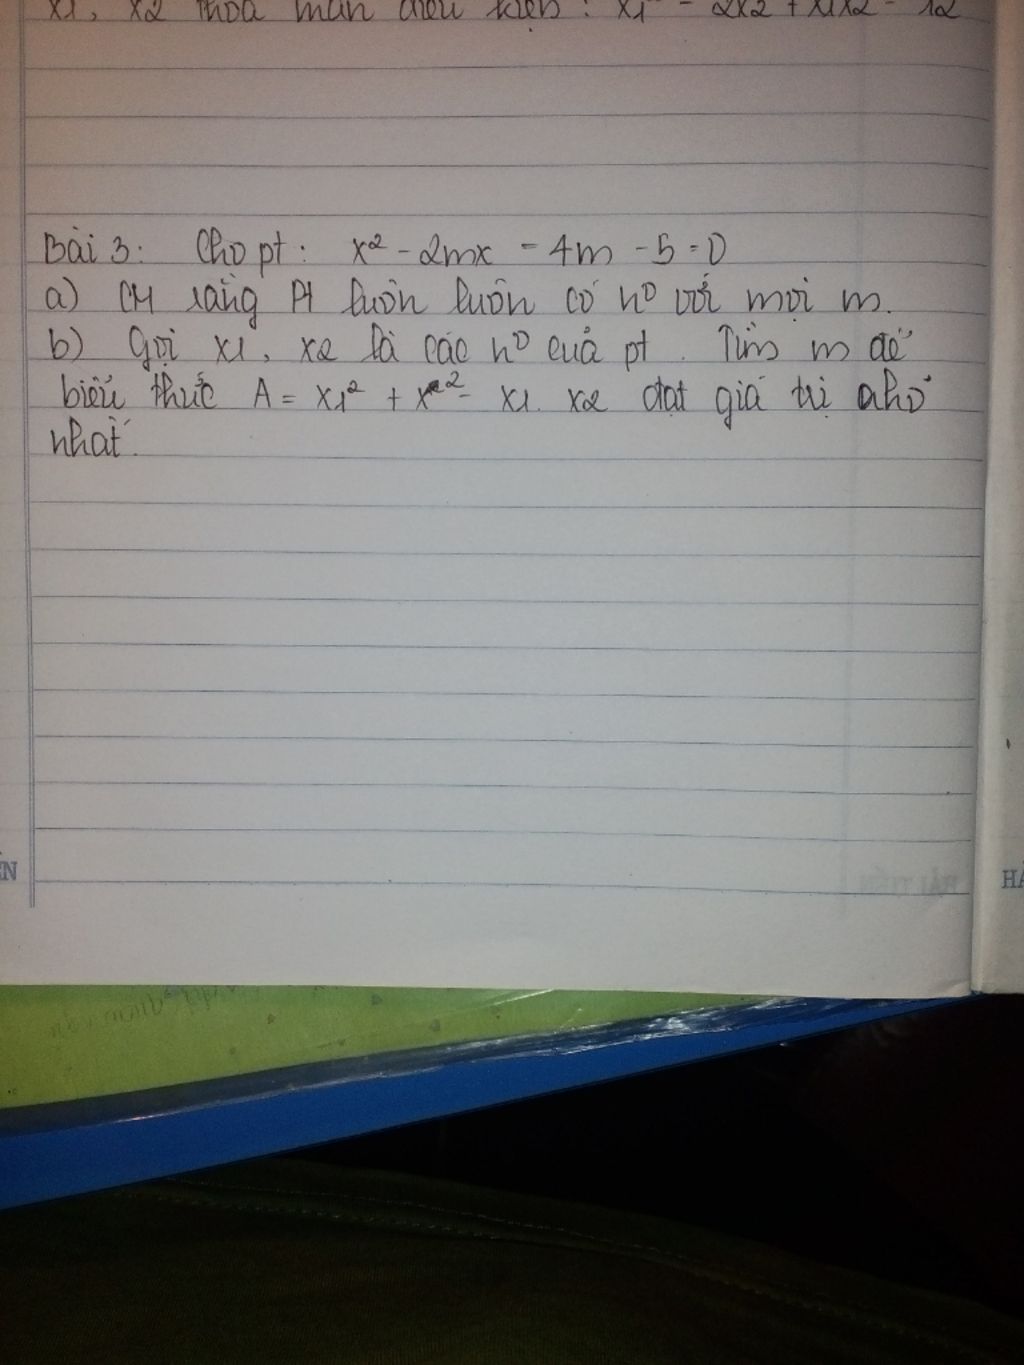 x1, x2 thỏa mãn điều kiện : x1² - 2x2 + x1x2 = 12
Bài 3: Cho pt: x² - 2mx - 4m - 5 = 0
a) CM rằng Pt luôn luôn có n⁰ với mọi m.
b) Gọi x1, x2 là các n⁰ của pt. Tìm m để
biểu thức A = x1² + x2² - x1. x2 đạt giá trị nhỏ
nhất.
ẾN
HẢI TIẾN
HẢ